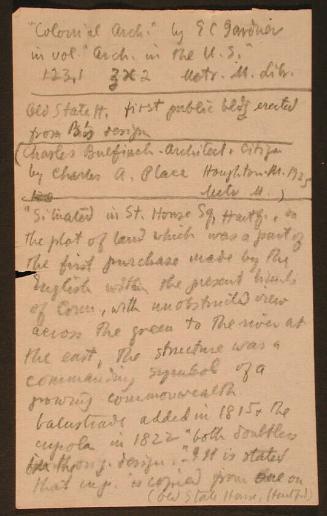 "Colonial Arch." by E C Gardner
in vol. "Arch. in the U.S."
123.1 Metr. M. Libr.
Old State H. first public bldg erected
from B's design
(Charles Bulfinch - Architect & Citizen
by Charles A. Place Houghton-M. 1925
Metr M.)
"Situated in St. House Sq, Hartf., on
the plot of land which was a part of
the first purchase made by the
English within the present limits
of Conn, with unobstructed view
across the green to the river at
the east, the structure was a
commanding symbol of a
growing commonwealth
balustrade added in 1815 & the
cupola in 1822 "both doubtless
in the orig. design." It is stated
that cup. is copied from one on
(Old State House, Hartford)